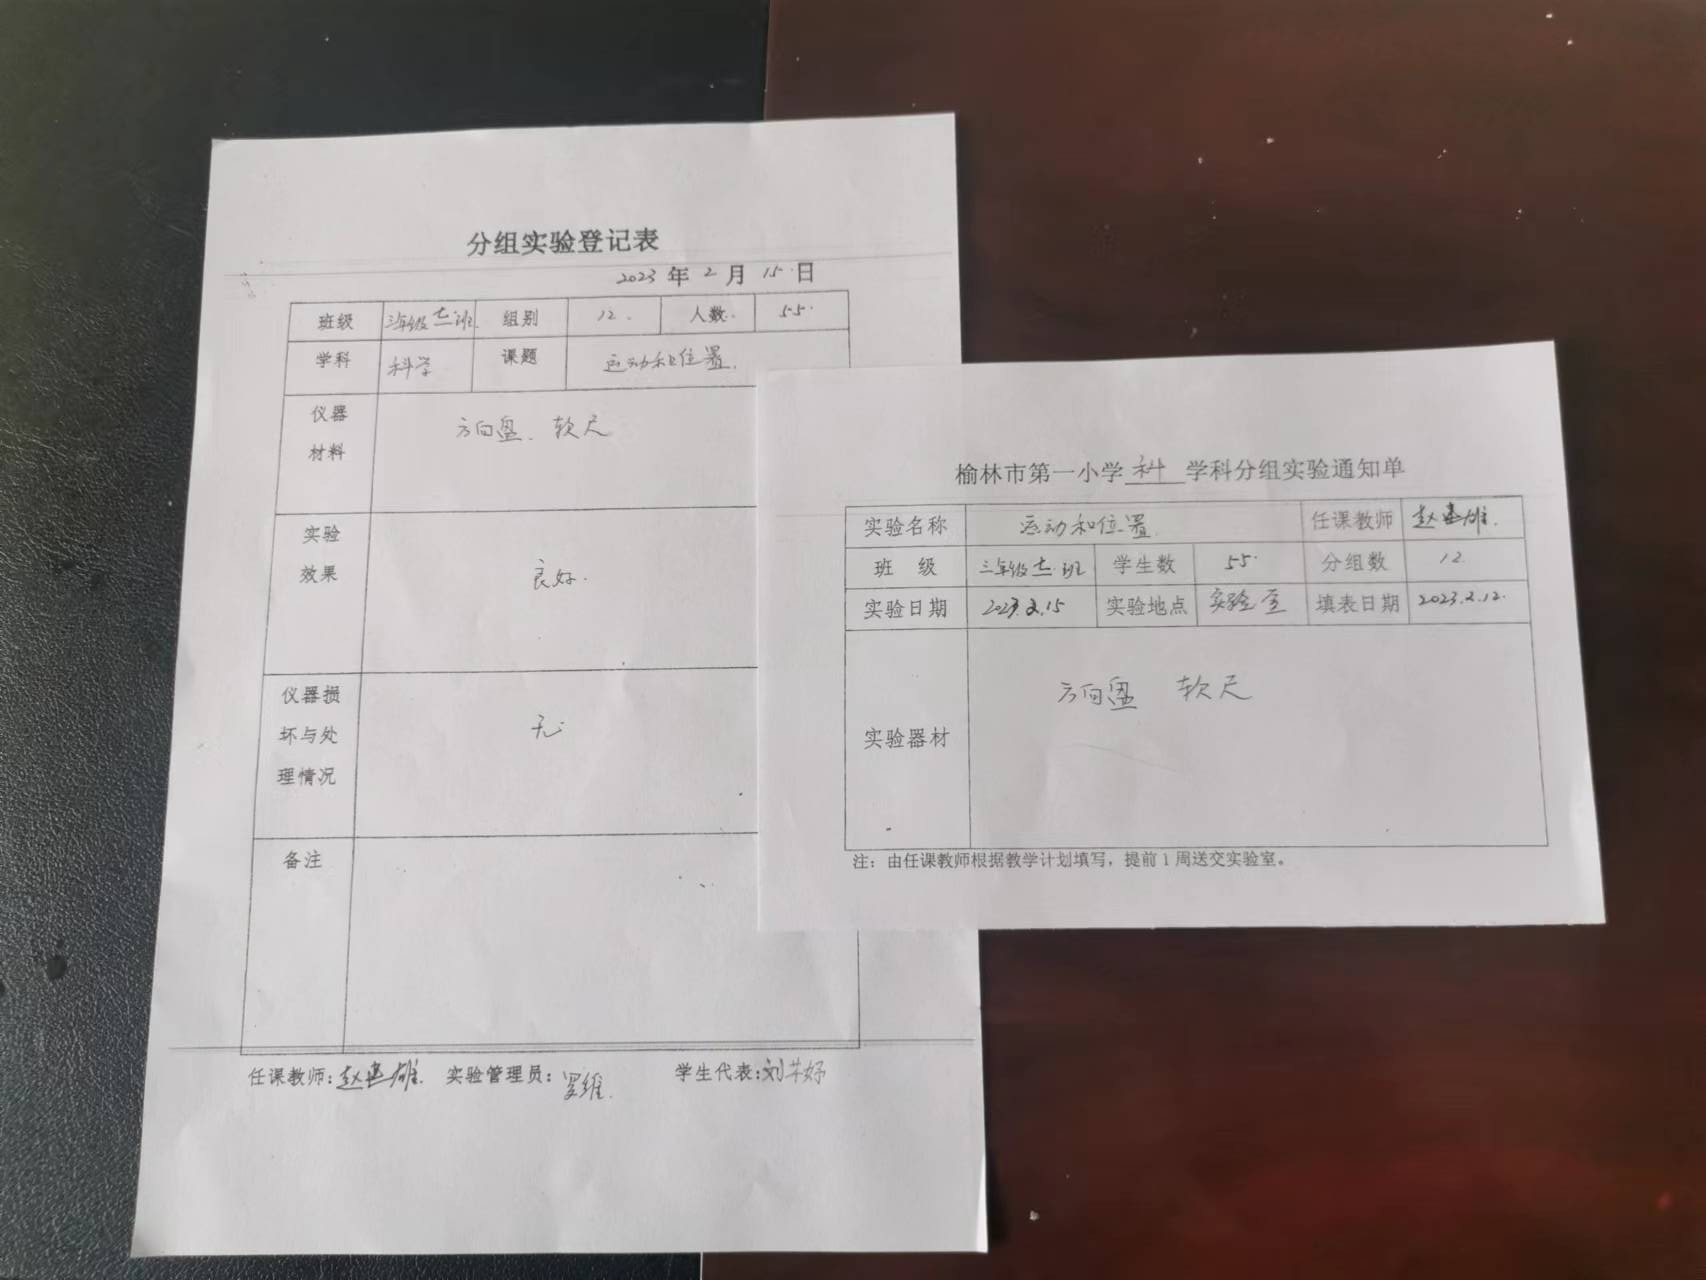 分组实验登记表
2023 年 2 月 15 日
班级 三年级十二班 组别 12 人数 55
学科 科学 课题 运动和位置
仪器材料 方向盘、软尺
实验效果 良好
仪器损坏与处理情况 无
备注
任课教师: 赵 雄 实验管理员: 罗维 学生代表: 刘 好
榆林市第一小学 科 学科分组实验通知单
实验名称 运动和位置 任课教师 赵 雄
班 级 三年级十二班 学生数 55 分组数 12
实验日期 2023.2.15 实验地点 实验室 填表日期 2023.2.12
实验器材 方向盘 软尺
注：由任课教师根据教学计划填写，提前1周送交实验室。